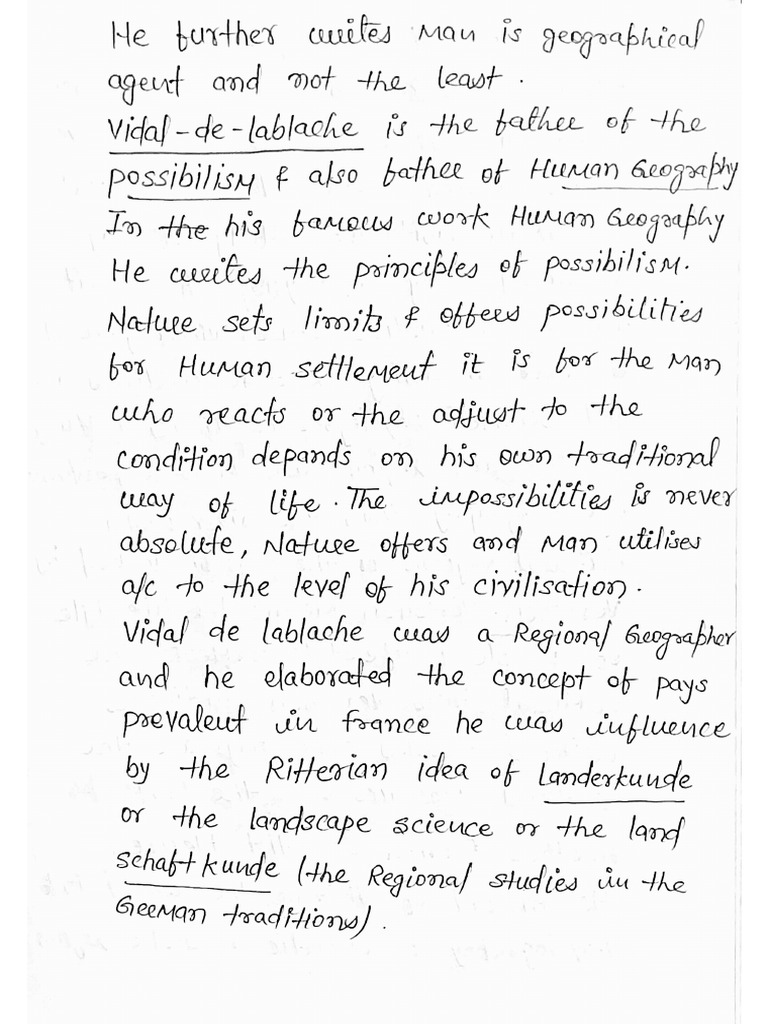 He further writes Man is geographical
agent and not the least.
Vidal-de-lablache is the father of the
possibilism & also father of Human Geography
In the his famous work Human Geography
He writes the principles of possibilism.
Nature sets limits & offers possibilities
for Human settlement it is for the Man
who reacts or the adjust to the
condition depands on his own traditional
way of life. The impossibilities is never
absolute, Nature offers and Man utilises
a/c to the level of his civilisation.
Vidal de lablache was a Regional Geographer
and he elaborated the concept of pays
prevalent in france he was influence
by the Ritterian idea of Landerkunde
or the landscape science or the land
schaft kunde (the Regional studies in the
German traditions).